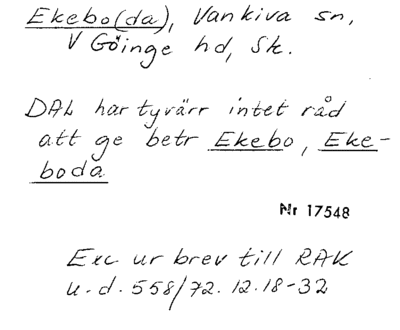 Ekebo(da), Vankiva sn,
V Göinge hd, Sk.
DAL har tyvärr intet råd
att ge betr Ekebo, Eke-
boda
Nr 17548
Exc ur brev till RAK
u.d. 558/72. 12.18-32